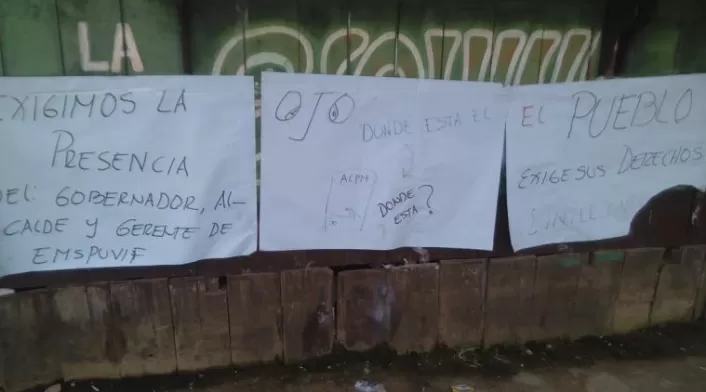 LA
EXIGIMOS LA
PRESENCIA
DEL: GOBERNADOR, AL-
CALDE Y GERENTE DE
EMSPUVIF
OJO
DONDE ESTA EL
DONDE
ESTA?
EL PUEBLO
EXIGE SUS DERECHOS